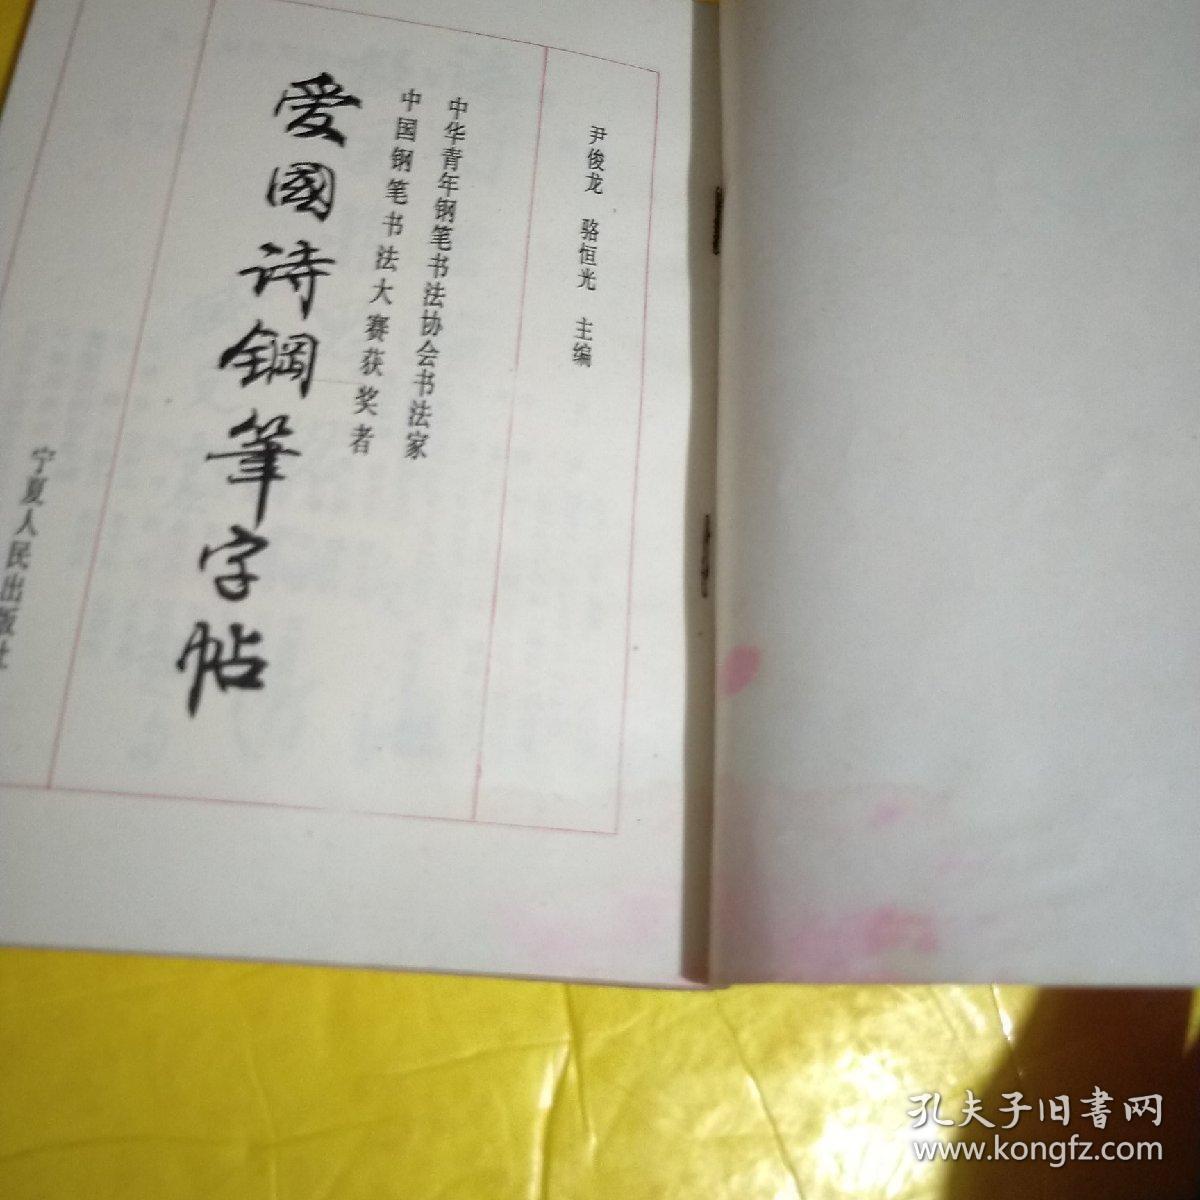 尹俊龙 骆恒光 主编
中华青年钢笔书法协会书法家
中国钢笔书法大赛获奖者
爱國诗鋼筆字帖
宁夏人民出版社
孔夫子旧書网
www.kongfz.com